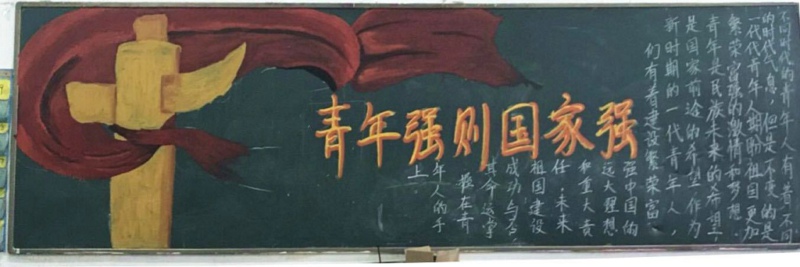 青年强则国家强
不同时代的青年人有着不同
的时代气息,但是不变的是
一代代青年人期盼祖国更加
繁荣富强的激情和梦想.
青年是民族未来的希望,
是国家前途的希望.作为
新时期的一代青年人,
们有着建设繁荣富
强中国的
远大理想
和重大责
任.未来
祖国建设
成功与否,
其命运掌
握在青
年人的手
上.